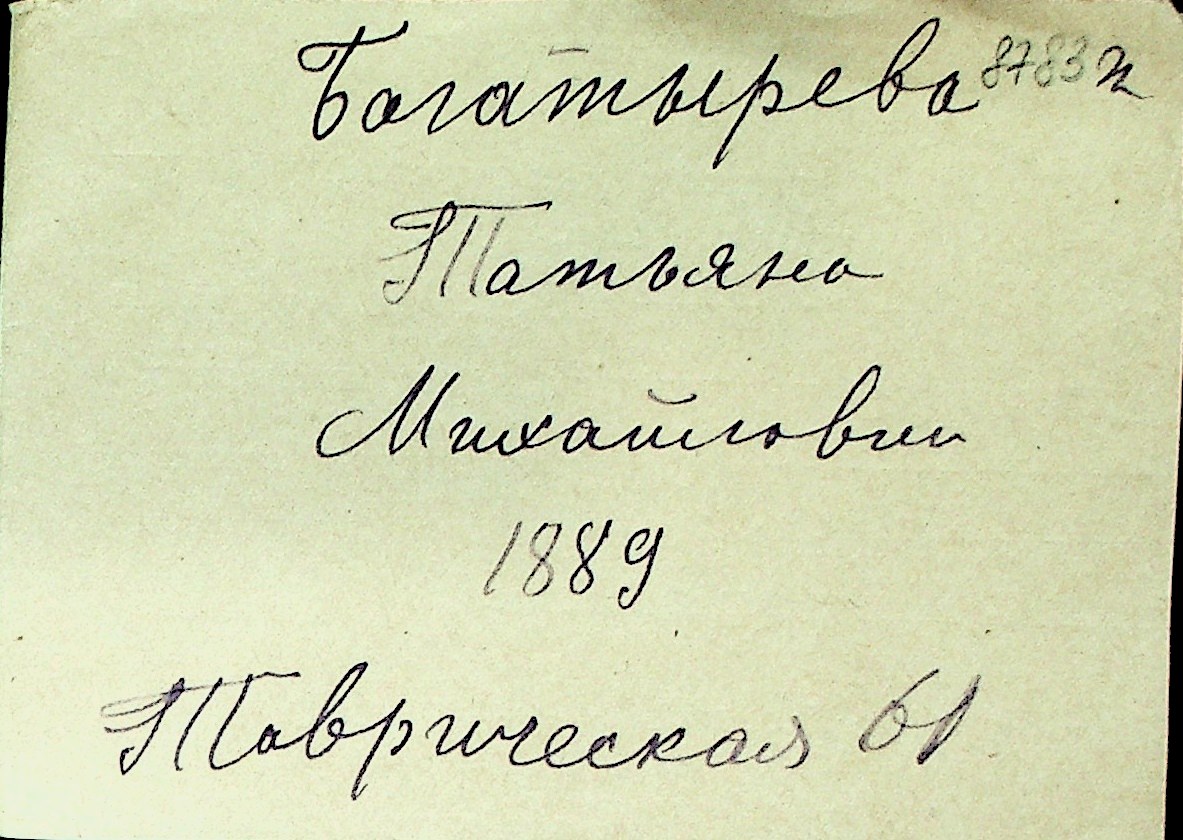 Богатырева 8783 н
Татьяна
Михайловна
1889
Таврическая 61